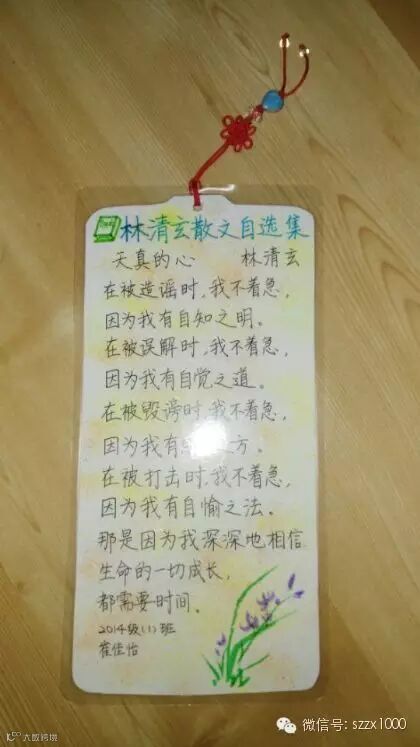 林清玄散文自选集
天真的心 林清玄
在被造谣时,我不着急,
因为我有自知之明。
在被误解时,我不着急,
因为我有自觉之道。
在被毁谤时,我不着急,
因为我有方。
在被打击时,我不着急,
因为我有自愉之法。
那是因为我深深地相信
生命的一切成长,
都需要时间。
2014级(1)班
崔佳怡
大数跨境
微信号: szzx1000